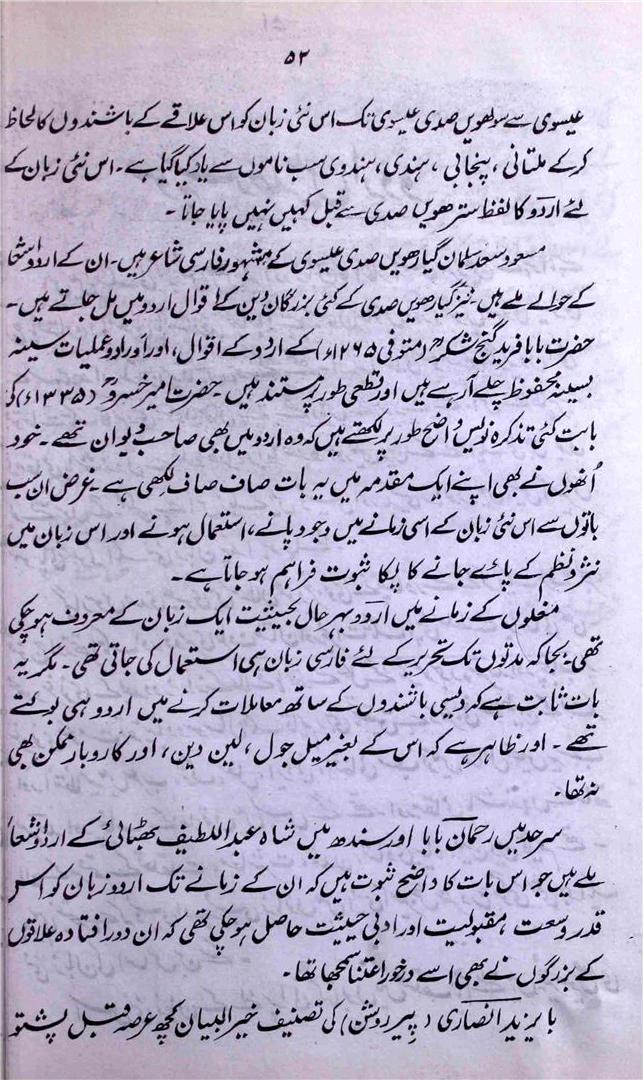 ۵۳
عیسوی سے سولھویں صدی عیسوی تک اس نئی زبان کو اس علاقے کے باشندوں کا لحاظ
کرکے ملتانی ، پنجابی ، ہندی ، ہندوی سب ناموں سے یاد کیا گیا ہے ۔ اس نئی زبان کے
لئے اردو کا لفظ سترھویں صدی سے قبل کہیں نہیں پایا جاتا ۔
مسعود سعد سلمان گیارھویں صدی عیسوی کے مشہور فارسی شاعر ہیں ۔ ان کے اردو اشعا
کے حوالے ملے ہیں ۔ نیز گیارھویں صدی کے کئی بزرگان دین کے اقوال اردو میں مل جاتے ہیں ۔
حضرت بابا فرید گنج شکرؒ (متوفی ۱۲۶۵ء) کے اردو کے اقوال ، اور اَوراد و عملیات سینہ
بسینہ محفوظ چلے آرہے ہیں اور قطعی طور پر مستند ہیں ۔ حضرت امیر خسروؒ (۱۳۳۵ء) کی
بابت کئی تذکرہ نویس واضح طور پر لکھتے ہیں کہ وہ اردو میں بھی صاحب دیوان تھے ۔ خود
اُنھوں نے بھی اپنے ایک مقدمہ میں یہ بات صاف صاف لکھی ہے ۔ غرض ان سب
باتوں سے اس نئی زبان کے اسی زمانے میں وجود پانے ، استعمال ہونے اور اس زبان میں
نثر و نظم کے پائے جانے کا پکا ثبوت فراہم ہو جاتا ہے ۔
مغلوں کے زمانے میں اردو بہر حال بحیثیت ایک زبان کے معروف ہو چکی
تھی ۔ بجا کہ مدتوں تک تحریر کے لئے فارسی زبان ہی استعمال کی جاتی تھی ۔ مگر یہ
بات ثابت ہے کہ دیسی باشندوں کے ساتھ معاملات کرنے میں اردو ہی بولتے
تھے ۔ اور ظاہر ہے کہ اس کے بغیر میل جول ، لین دین ، اور کاروبار ممکن بھی
نہ تھا ۔
سرحد میں رحمان بابا اور سندھ میں شاہ عبد اللطیف بھٹائیؒ کے اردو اشعا
ملے ہیں جو اس بات کا واضح ثبوت ہیں کہ ان کے زمانے تک اردو زبان کو اس
قدر وسعت ، مقبولیت اور ادبی حیثیت حاصل ہو چکی تھی کہ ان دور افتادہ علاقوں
کے بزرگوں نے بھی اسے درخور اعتنا سمجھا تھا ۔
بایزید انصاری (پیر روشن) کی تصنیف خیر البیان کچھ عرصہ قبل پشتو